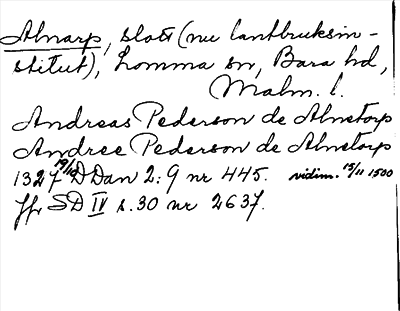 Alnarp, slott (nu lantbruksin-
stitut), Lomma sn, Bara hd,
Malm. l.
Andreas Pederson de Alnetorp
Andree Pederson de Alnetorp
1327 19/10 DDan 2:9 nr 445. vidim. 15/11 1500
Jfr SD IV s. 30 nr 2637.